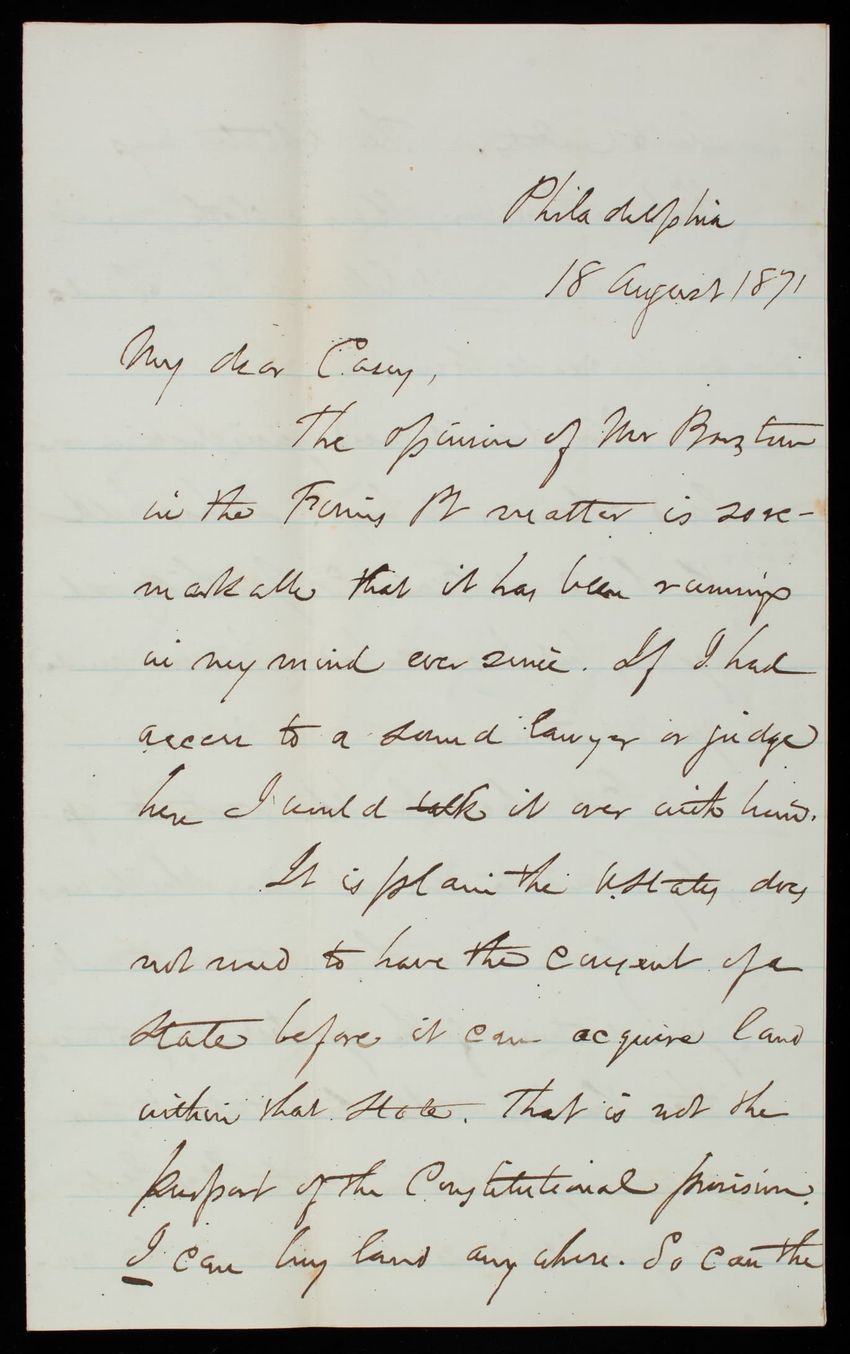 Philadelphia
18 August 1871
My dear Casey,
The opinion of Mr
in the Finns Pt matter is so re-
markable that it has been running
in my mind ever since. If I had
access to a sound lawyer or judge
here I would talk it over with him.
It is plain the U. States does
not need to have the consent of a
State before it can acquire land
within that State. That is not the
purport of the Constitutional provision.
I can buy land any where. So can the